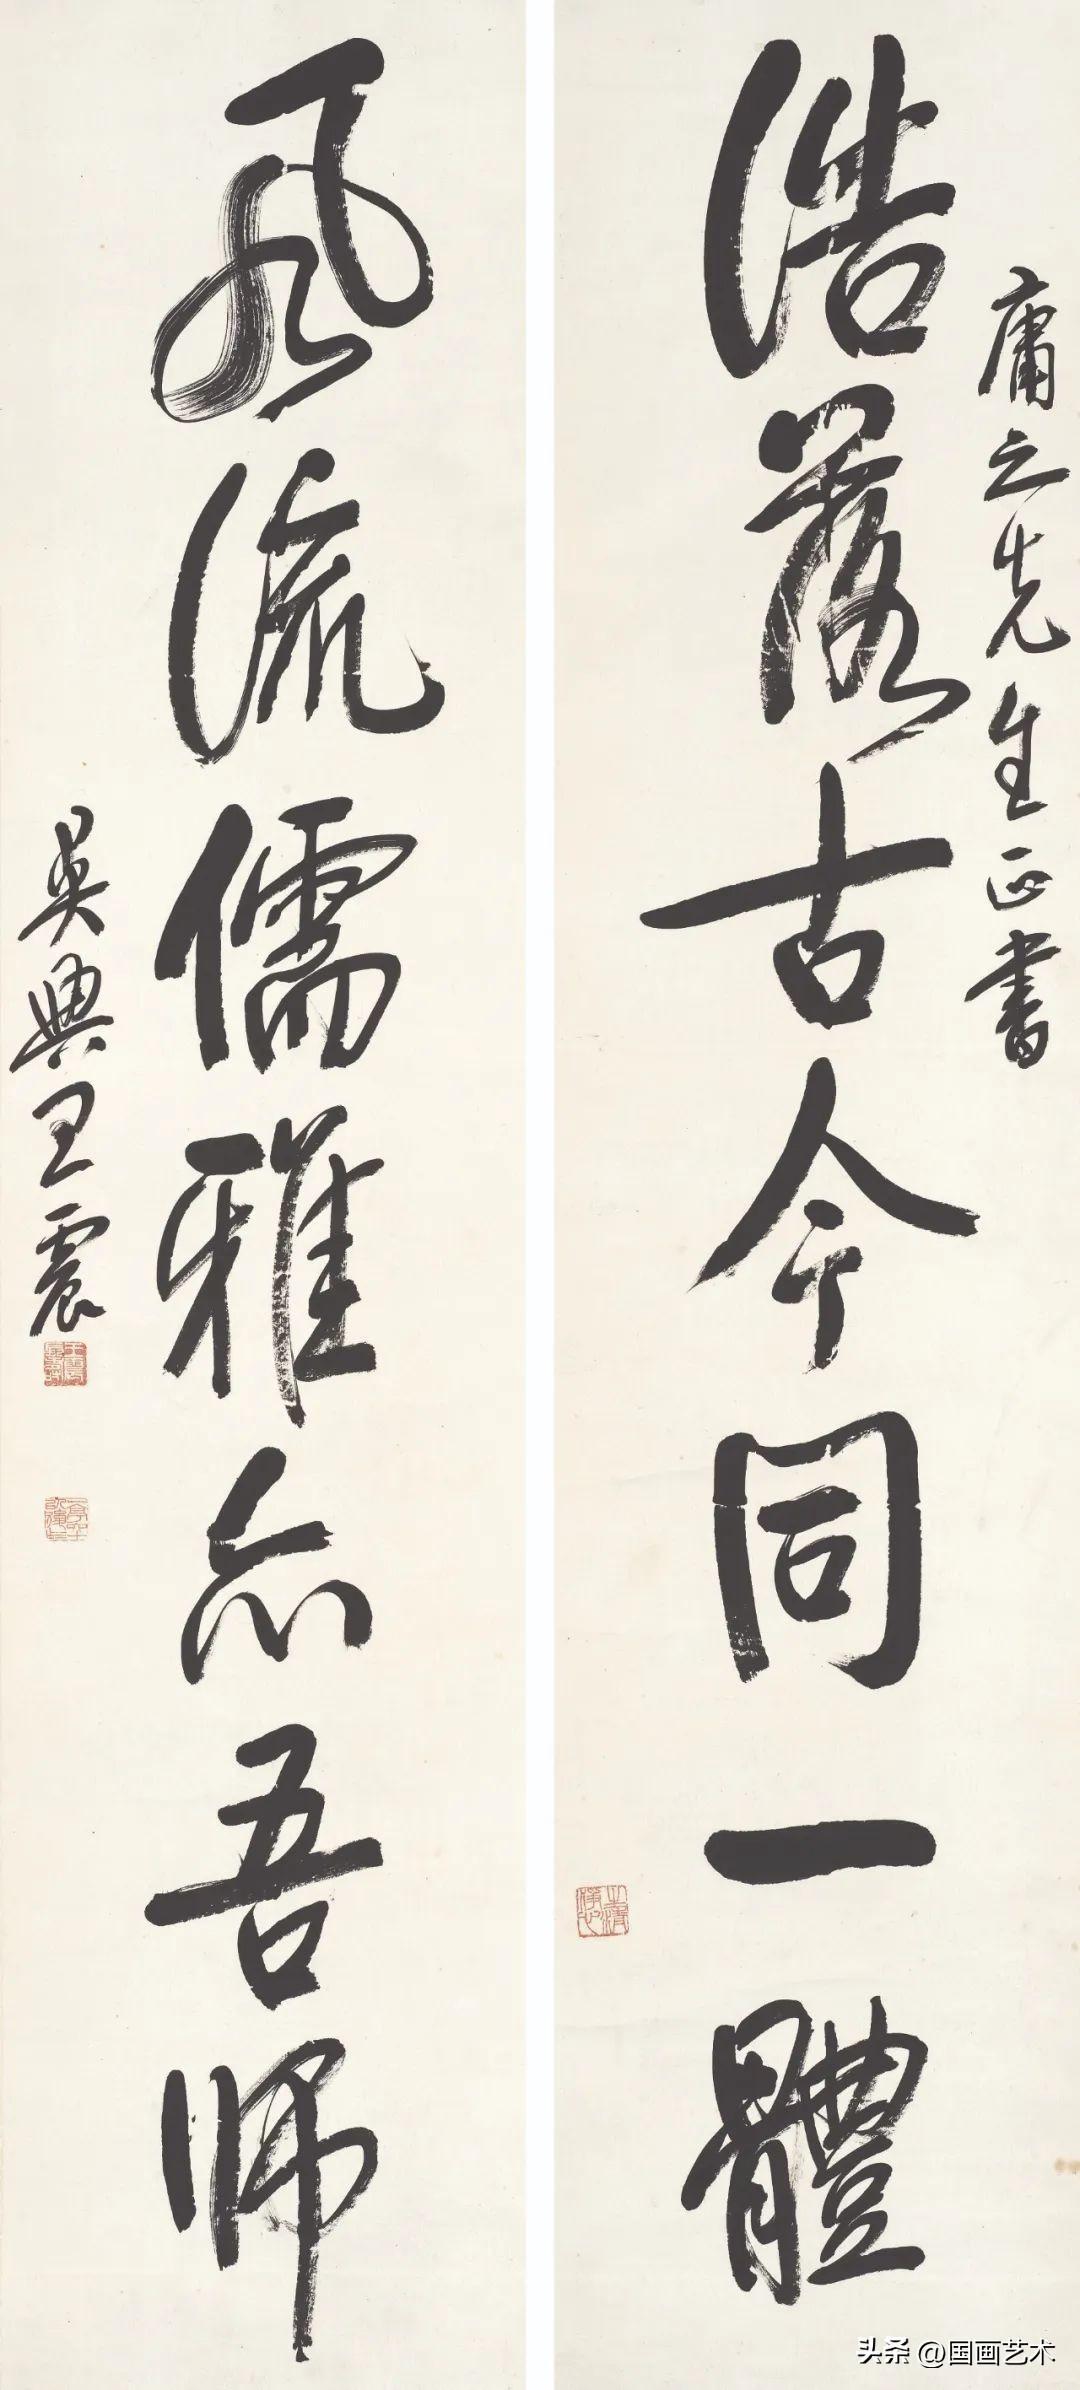 庸之先生正書
浩落古今同一體
風流儒雅亦吾師
吳興王震
头条 @国画艺术